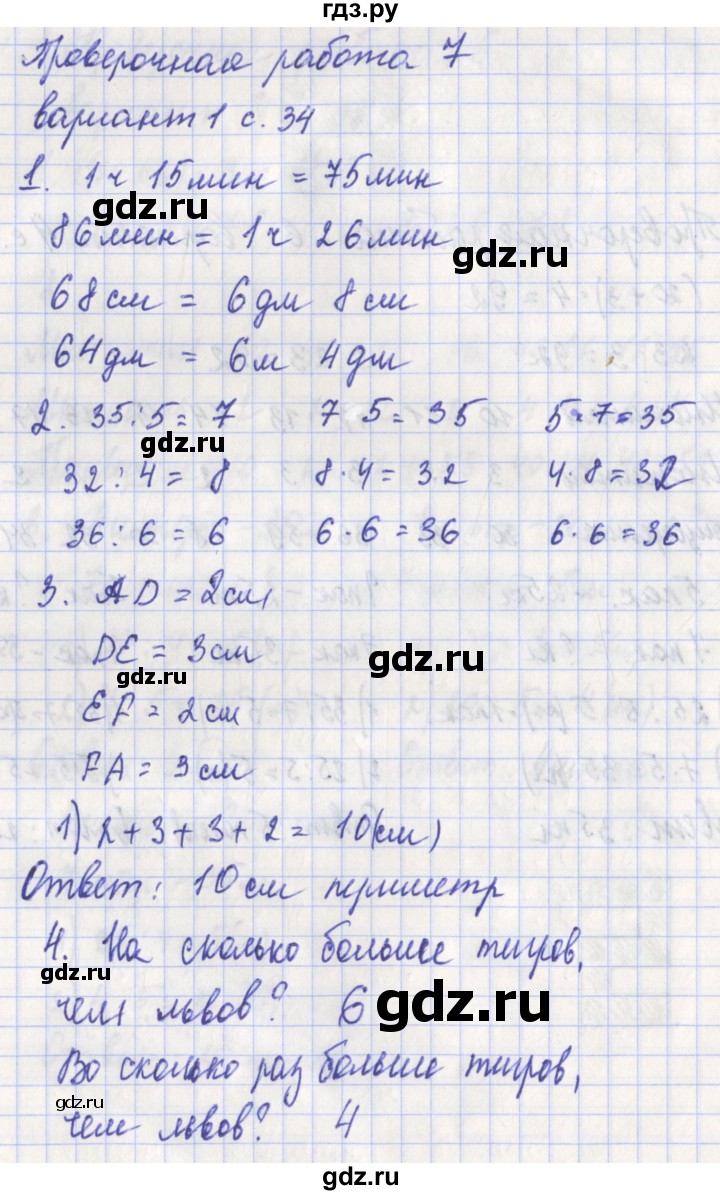 гдз.ру
Проверочная работа 7
вариант 1 с. 34
1. 1ч 15мин = 75мин
gdz.ru
86мин = 1ч 26мин
gdz.ru
68см = 6дм 8см
64дм = 6м 4дм
2. 35:5=7 7·5=35 5·7=35
gdz.ru
32:4=8 8·4=32 4·8=32
36:6=6 6·6=36 6·6=36
3. AD = 2см
DE = 3см
gdz.ru
gdz.ru
EF = 2см
FA = 3см
1) 2+3+3+2=10(см)
Ответ: 10см периметр
4. На сколько больше тигров,
gdz.ru
чем львов? 6
gdz.ru
Во сколько раз больше тигров,
gdz.ru
чем львов? 4
gdz.ru